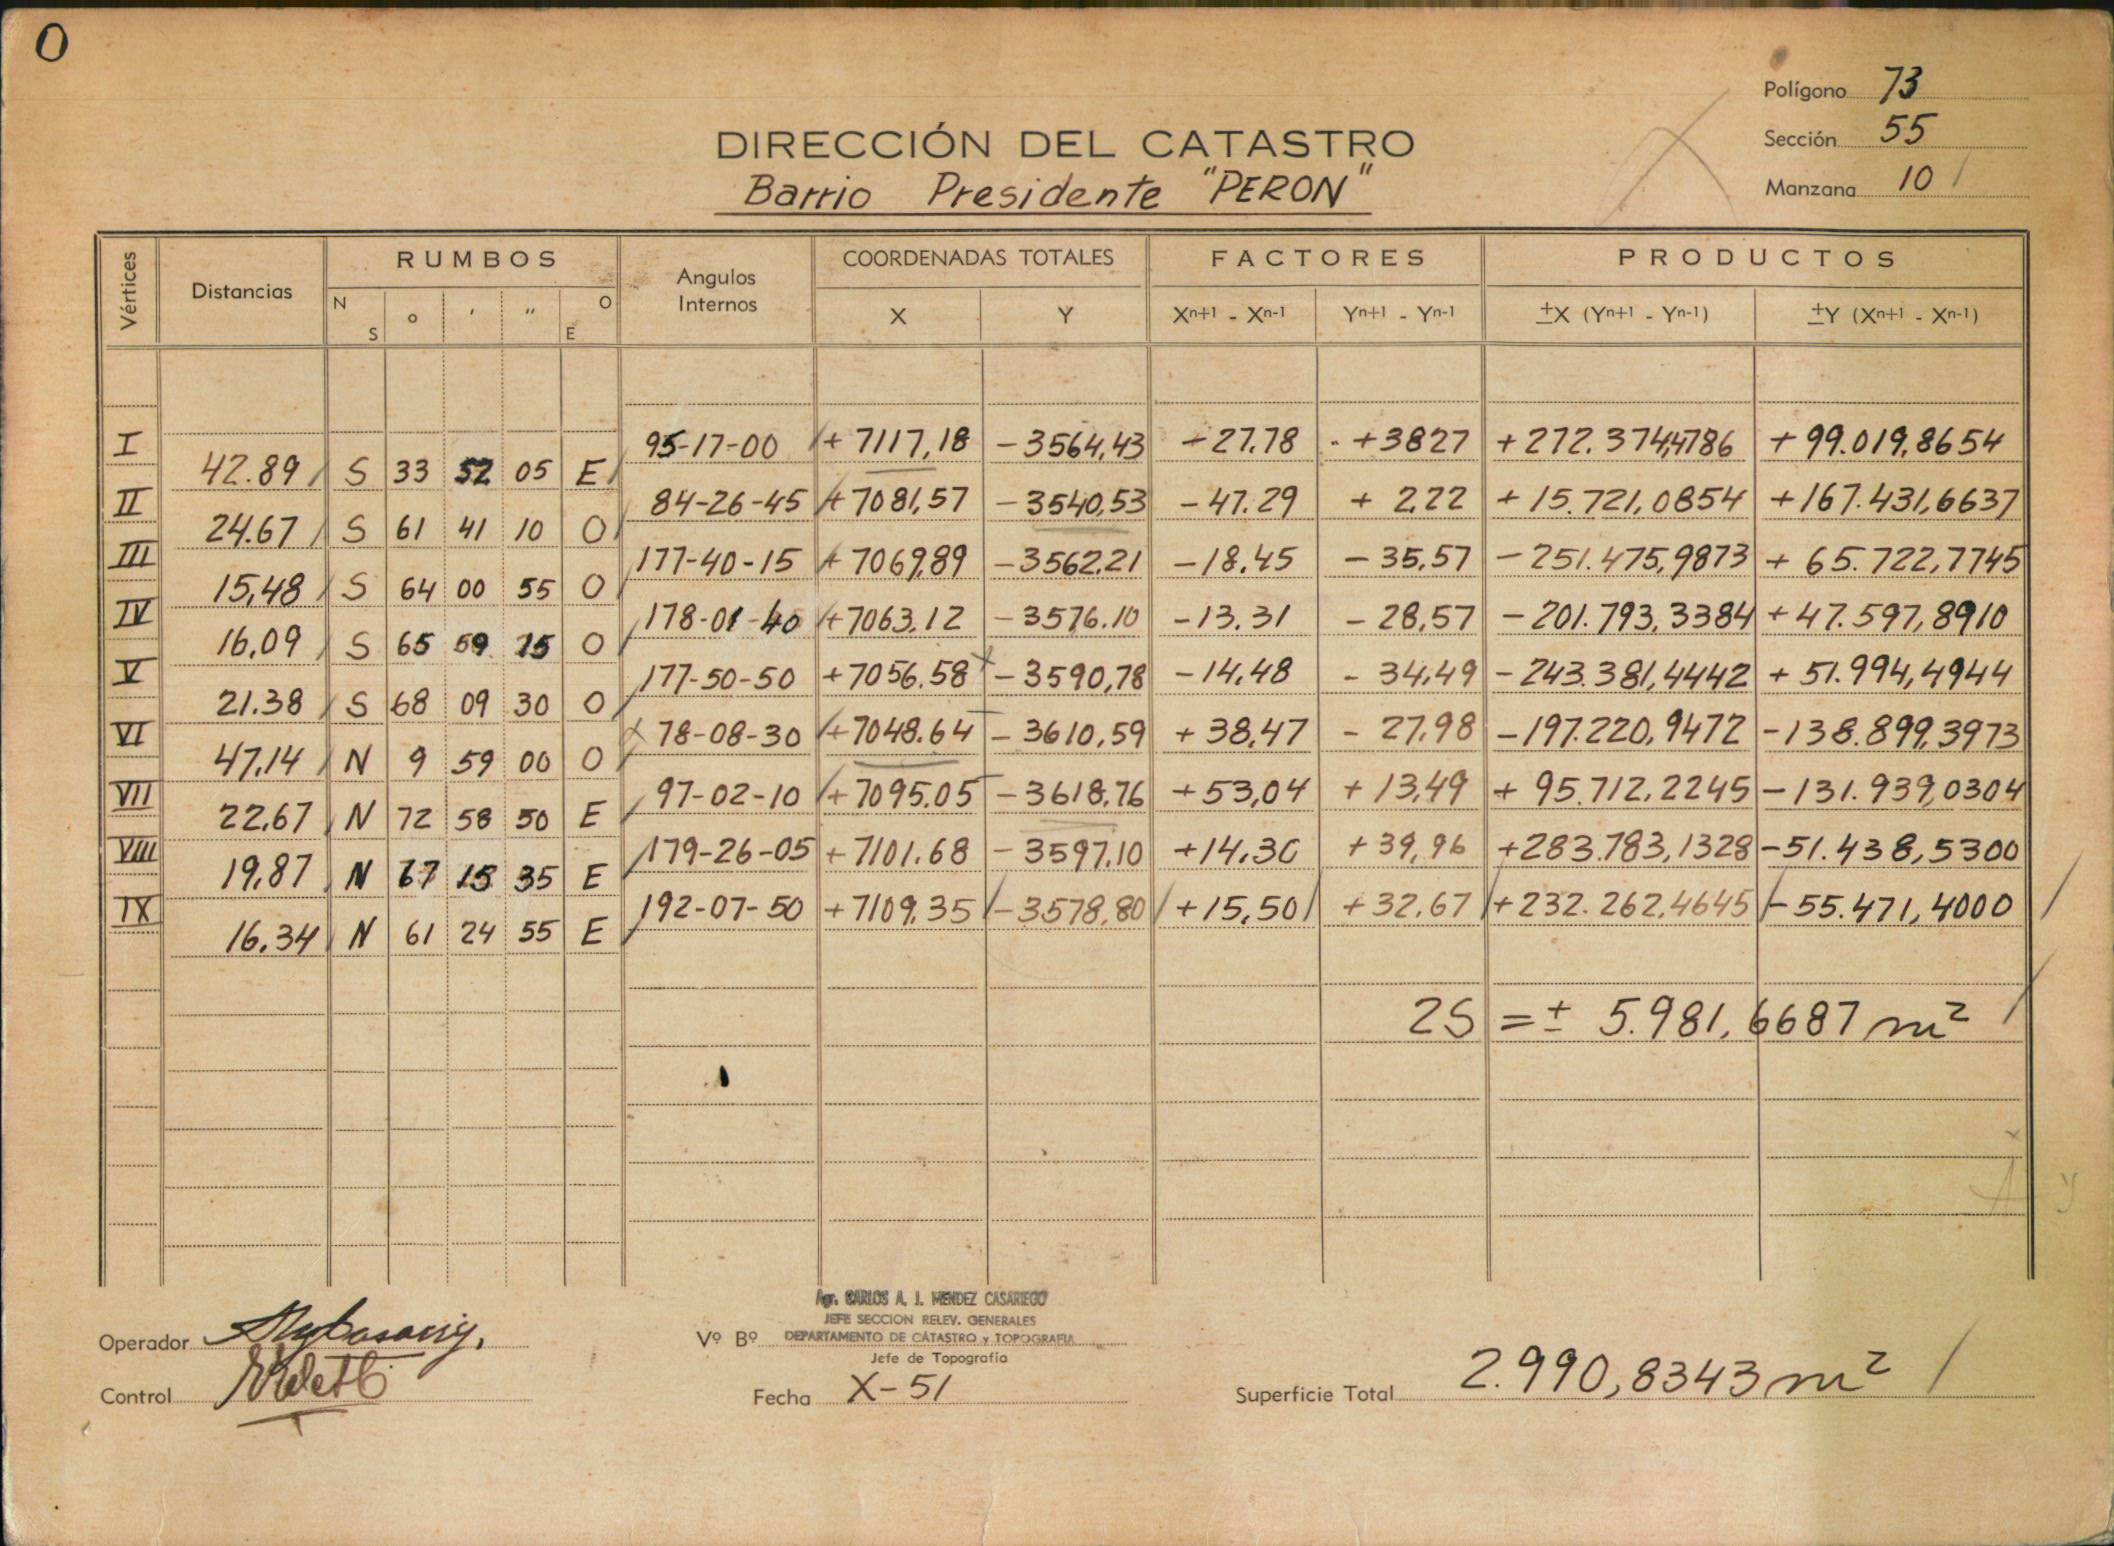 0
Polígono 73
Sección 55
Manzana 10
DIRECCIÓN DEL CATASTRO
Barrio Presidente "PERON"
Vértices Distancias RUMBOS Angulos Internos COORDENADAS TOTALES FACTORES PRODUCTOS
N S ° ' " O E X Y Xn+1 - Xn-1 Yn+1 - Yn-1 ±X (Yn+1 - Yn-1) ±Y (Xn+1 - Xn-1)
I 95-17-00 + 7117,18 - 3564,43 - 27.78 + 3827 + 272.374,4786 + 99.019,8654
42.89 S 33 52 05 E
II 84-26-45 + 7081,57 - 3540,53 - 47.29 + 2,22 + 15.721,0854 + 167.431,6637
24.67 S 61 41 10 O
III 177-40-15 + 7069,89 - 3562.21 - 18.45 - 35,57 - 251.475,9873 + 65.722,7745
15,48 S 64 00 55 O
IV 178-01-40 + 7063.12 - 3576.10 - 13.31 - 28,57 - 201.793,3384 + 47.597,8910
16,09 S 65 59 15 O
V 177-50-50 + 7056.58 - 3590,78 - 14,48 - 34,49 - 243.381,4442 + 51.994,4944
21.38 S 68 09 30 O
VI 78-08-30 + 7048.64 - 3610,59 + 38,47 - 27,98 - 197.220,9472 - 138.899,3973
47,14 N 9 59 00 O
VII 97-02-10 + 7095.05 - 3618,76 + 53,04 + 13,49 + 95.712,2245 - 131.939,0304
22,67 N 72 58 50 E
VIII 179-26-05 + 7101.68 - 3597.10 + 14,30 + 39,96 + 283.783,1328 - 51.438,5300
19,87 N 67 15 35 E
IX 192-07-50 + 7109,35 - 3578,80 + 15,50 + 32,67 + 232.262,4645 - 55.471,4000
16,34 N 61 24 55 E
2S = ± 5.981,6687 m²
Agr. CARLOS A. J. MENDEZ CASARIEGO
JEFE SECCION RELEV. GENERALES
Operador
Vº Bº DEPARTAMENTO DE CATASTRO y TOPOGRAFIA
Jefe de Topografía
Control
Fecha X-51
Superficie Total 2.990,8343 m²